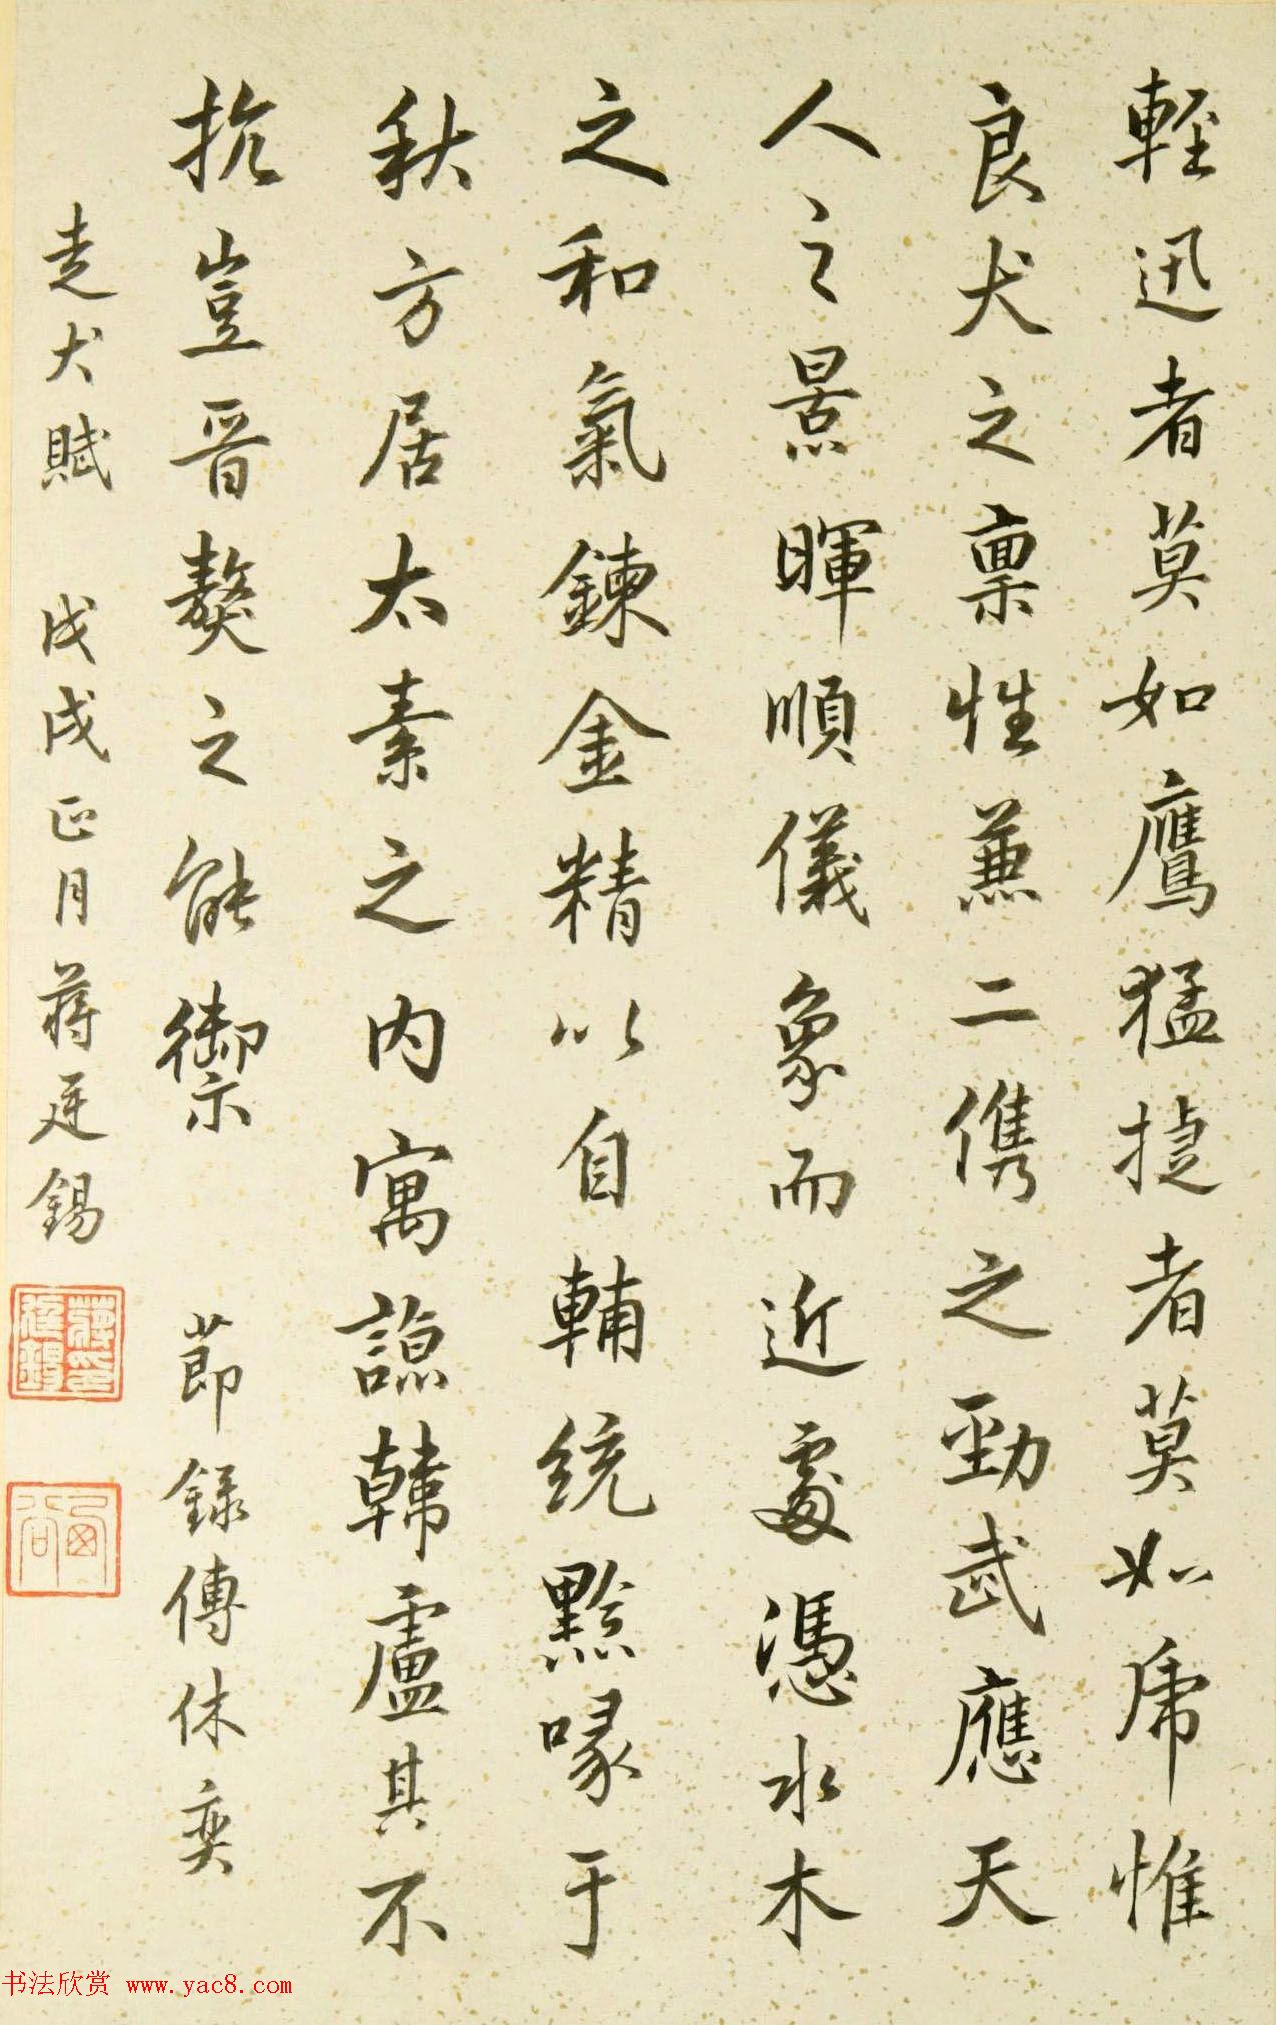 輕迅者莫如鷹猛捷者莫如虎惟
良犬之禀性兼二儁之勁武應天
人之景暉順儀象而近處憑水木
之和氣鍊金精以自輔統黔喙于
秋方居太素之內寓諒韓盧其不
抗豈晉獒之能禦 節錄傅休奕
走犬賦 戊戌正月蔣廷錫
蔣印廷錫
西谷
书法欣赏 www.yac8.com